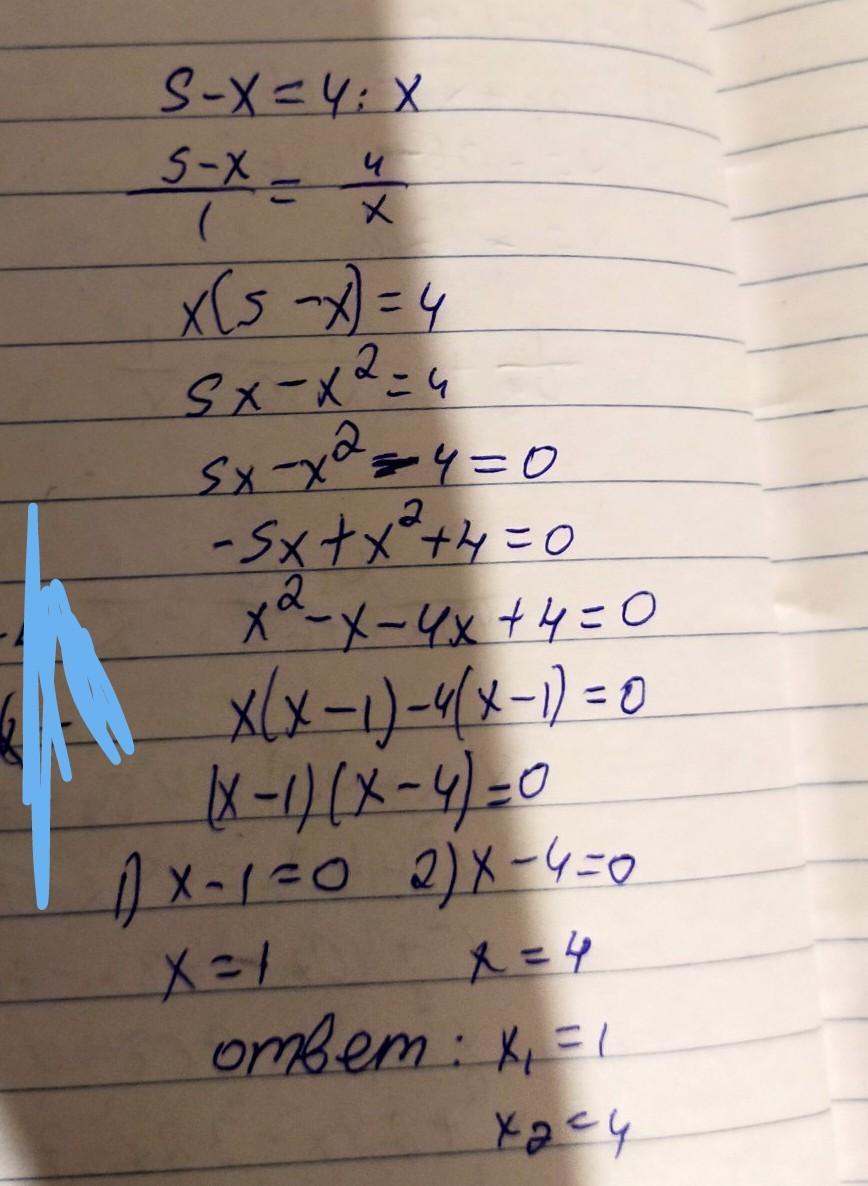 5-x=4:x
5-x/1 = 4/x
x(5-x)=4
5x-x²=4
5x-x²-4=0
-5x+x²+4=0
x²-x-4x+4=0
x(x-1)-4(x-1)=0
(x-1)(x-4)=0
1) x-1=0 2) x-4=0
x=1 x=4
ответ: x₁=1
x₂=4